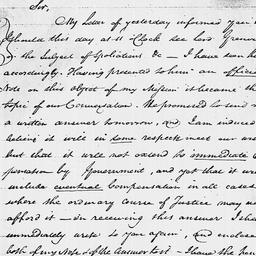 Sir,
My Letter of yesterday informed you
I should this day at 11 Clock see Lord Grenv
on the Subject of Spoliations &c — I have seen h
accordingly. Having presented to him an official
Note on this object of my Mission it became th
topic of our Conversation. He promised to send
a written answer tomorrow, and I am induced
believe it will in some respect meet our
but that it will not extend to immediate
pensation by Government, and yet that it w
include eventual Compensation in all cases
where the ordinary Course of Justice may no
afford it — on receiving this answer I sha
immediately write to you again, and enclose
both of my Note & of the answer to it — I have the hon